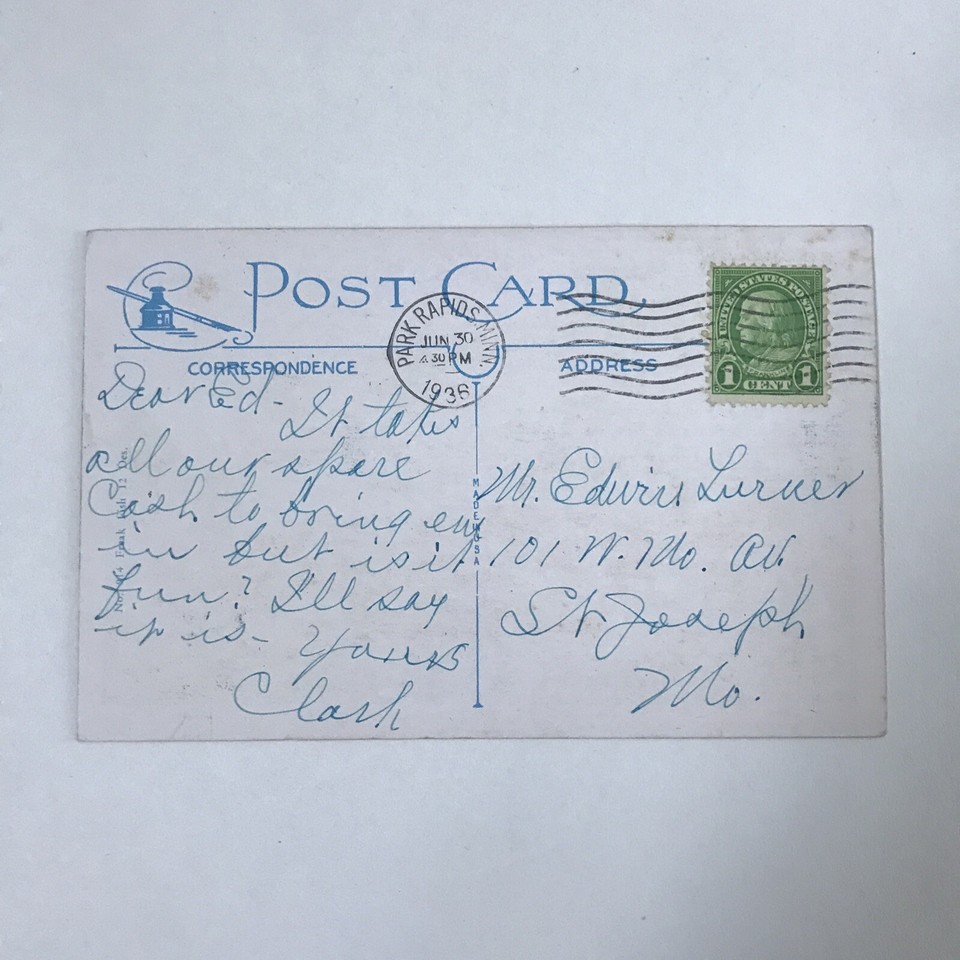 POST CARD
CORRESPONDENCE
ADDRESS
PARK RAPIDS, MINN.
JUN 30
4 30 PM
1936
UNITED STATES POSTAGE
FRANKLIN
1 CENT 1
Dear Ed - It takes
all our spare
Cash to bring em
in but is it
fun? I'll say
it is - Yours
Clark
MADE IN USA
Mr. Edwin Turner
101 W. Mo. Av.
St Joseph
Mo.
Freak Fish 12 Des.